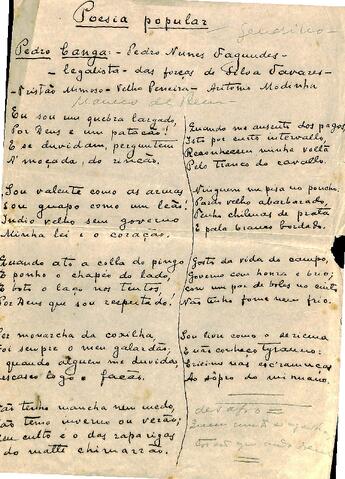 Poesia popular
Pedro Canga: - Pedro Nunes Fagundes -
- legalista - das forças de Silva Tavares -
- Tristão Mimoso - Velho Pereira - Antonio Modinha
Eu sou um quebra largado,
Por Deus e um patacão!
E se duvidam, perguntem
A' moçada, do rincão.
Sou valente como as armas
Sou guapo como um leão!
Indio velho sem governo
Minha lei é o coração.
Quando ato a colla do pingo
E ponho o chapéo do lado,
E boto o laço nos tentos,
Por Deus que sou respeitado!
Por monarcha da coxilha,
Foi sempre o meu galardão;
quando alguem me duvida
logo o facão.
Não tenho mancha nem medo,
Não temo inverno ou verão;
culto é o das raparigas
do matte chimarrão.
Quando me ausento dos pagos
Isto por curto intervallo
Reconhecem minha volta
Pelo tranco do cavallo.
Ninguem me pisa no poncho,
Pardo velho abarbarado,
Tenho chilenas de prata
E pala branco bordado.
Gosto da vida do campo,
Governo com honra e brio;
Com um par de bolas no cinto
Não tenho fome nem frio.
Sou livre como o seriema
E não conheço tyranno:
nas escaramuças
Ao sôpro do minuano.